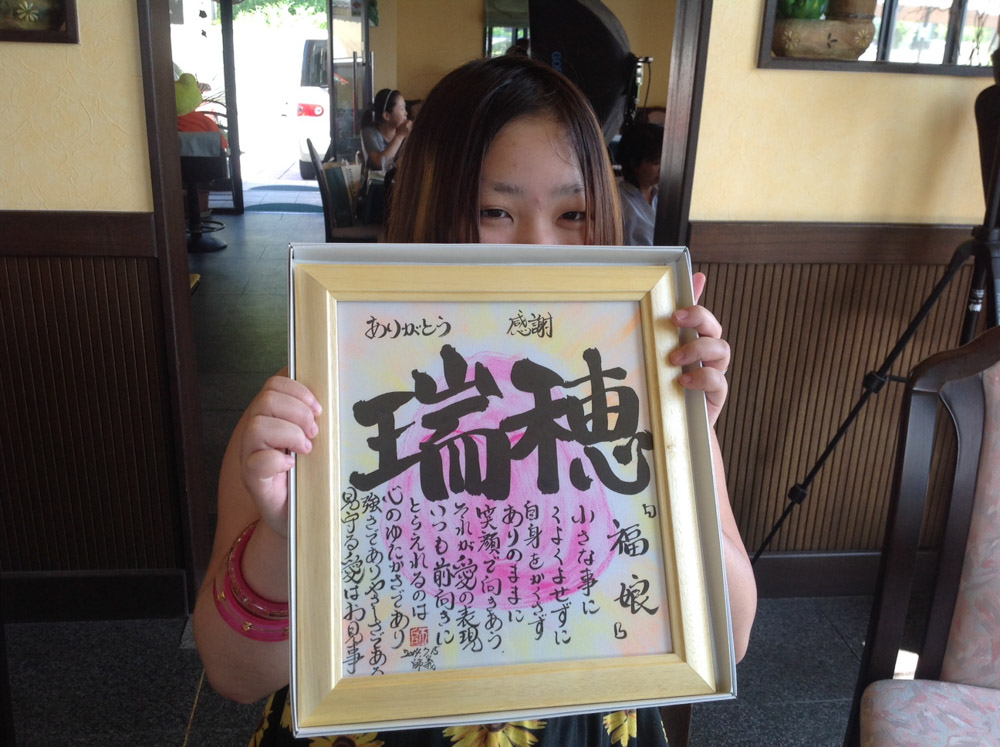 ありがとう 感謝
瑞穂
『福娘』
小さな事に
くよくよせずに
自身をかくさず
ありのままに
笑顔で向きあう
それが愛の表現
いつも前向きに
とらえれるのは
心のゆたかさであり
強さでありやさしさである
見守る愛はお見事